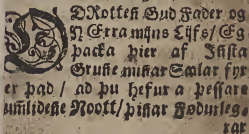 DRotten Gud Fader og
N Erra mijns Lijfs / Eg
packa þier af Jñsta
Gruñe miñar Sælar fyr
er þad / ad þu hefur a þessare
umlidene Noott / þinar Födurleg-
rar